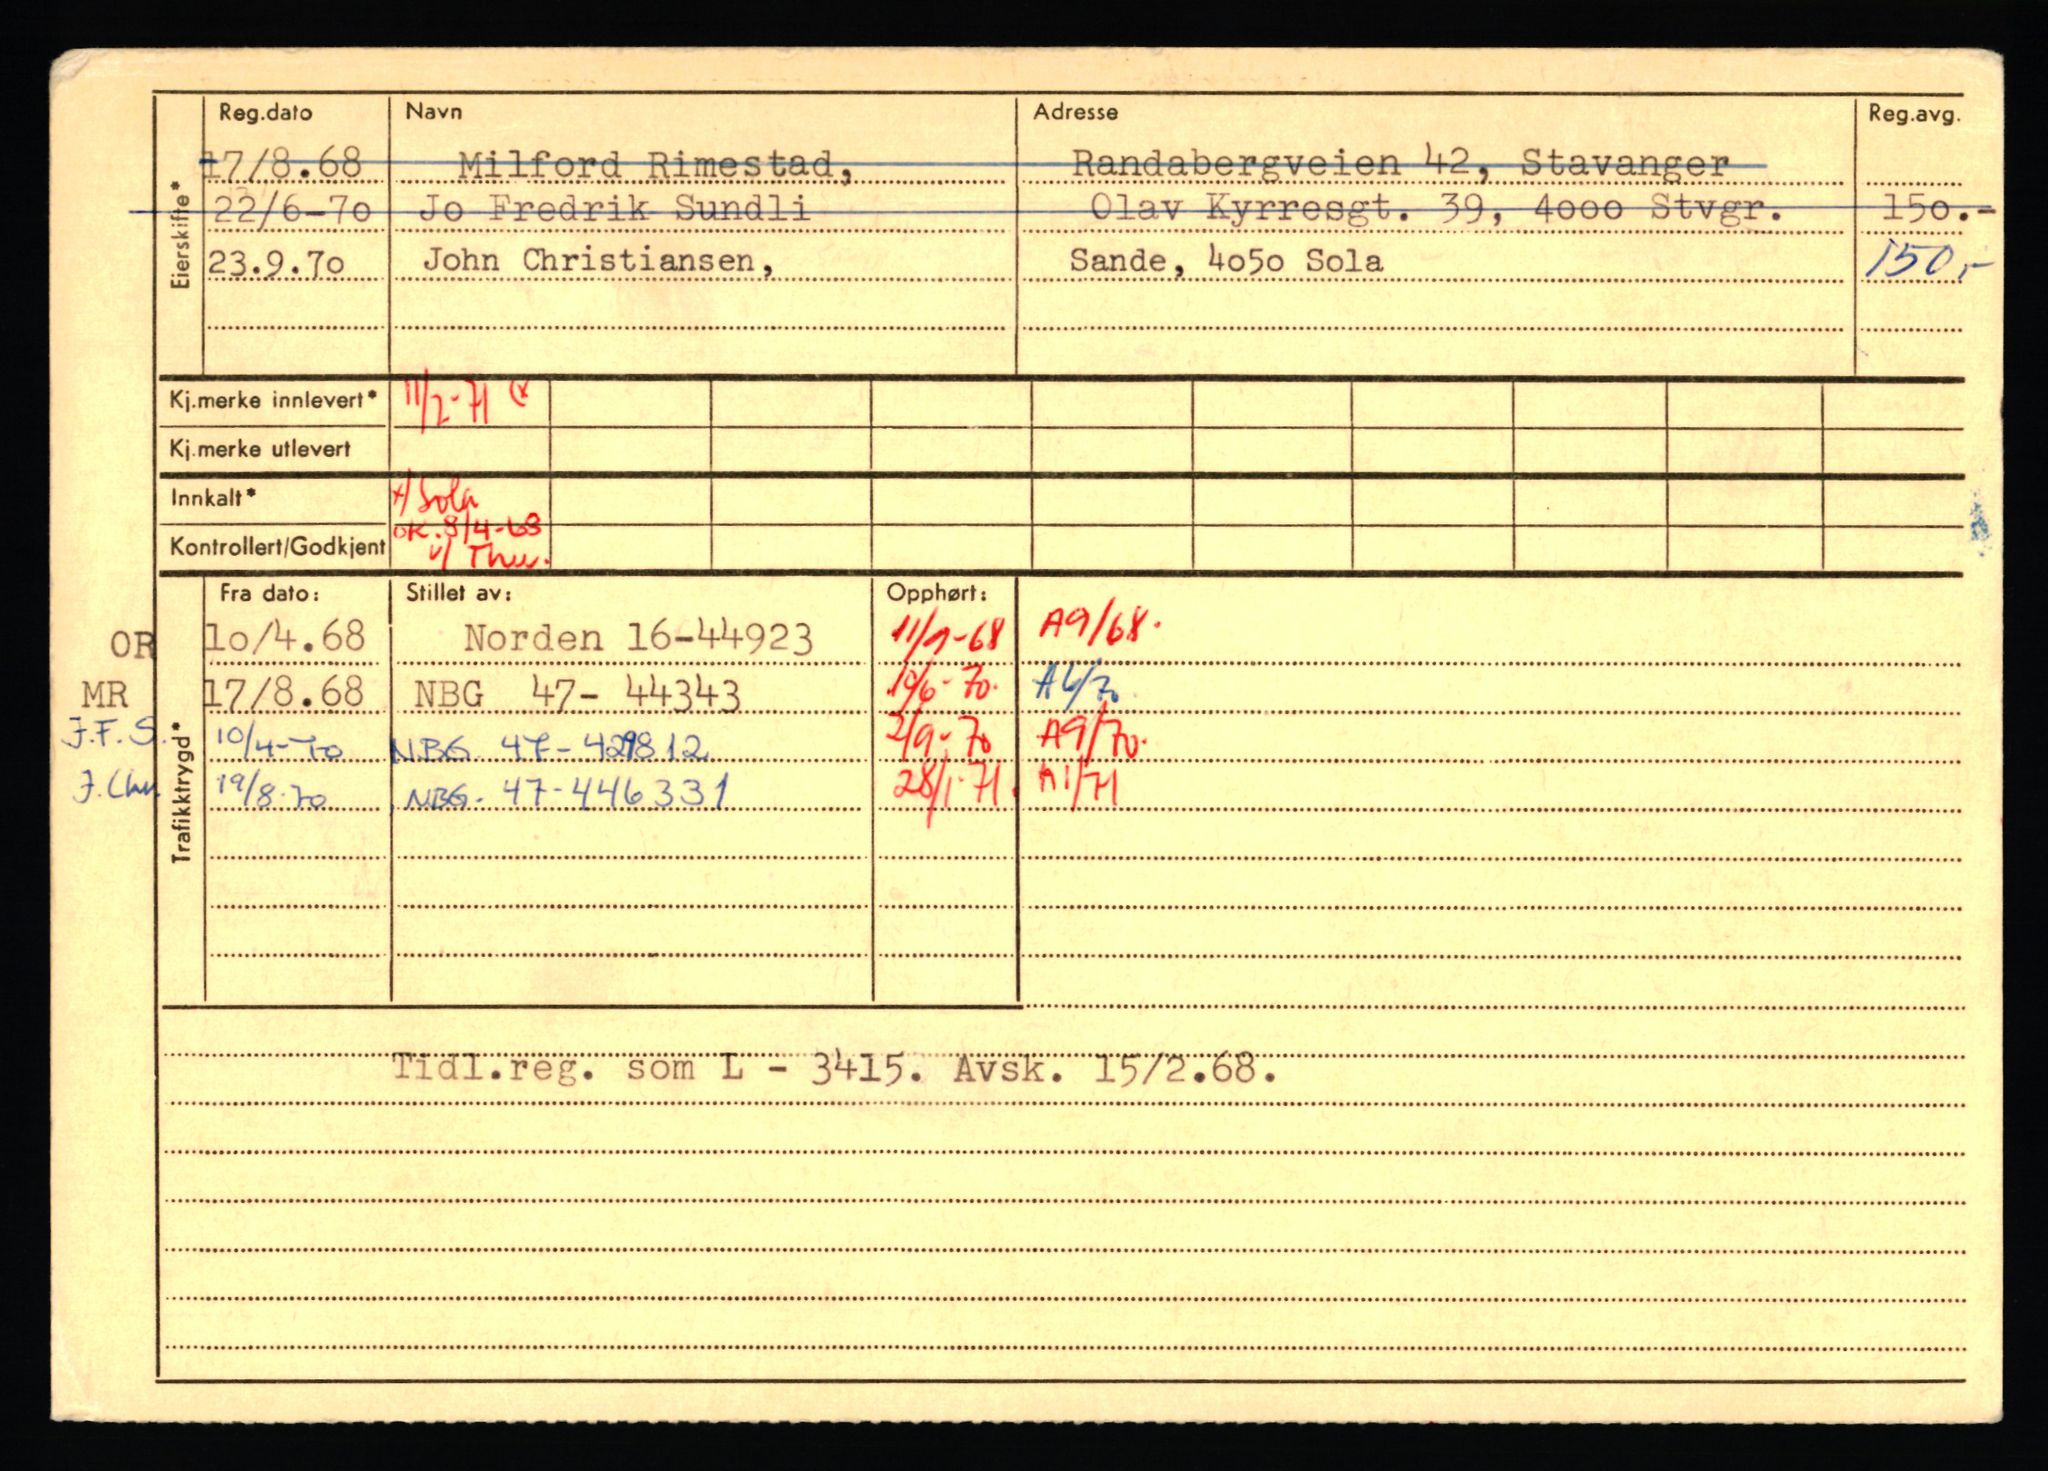 Eierskifte*
Reg.dato Navn Adresse Reg.avg.
17/8.68 Milford Rimestad, Randabergveien 42, Stavanger
22/6-70 Jo Fredrik Sundli Olav Kyrresgt. 39, 4000 Stvgr. 150.-
23.9.70 John Christiansen, Sande, 4050 Sola 150,-
Kj.merke innlevert* 11/2-71
Kj.merke utlevert
Innkalt* x/ Sola
OK. 8/4-68
Kontrollert/Godkjent v/
Trafikktrygd*
Fra dato: Stillet av: Opphørt:
OR 10/4.68 Norden 16-44923 11/9-68 A9/68.
MR 17/8.68 NBG 47- 44343 19/6-70. A6/70
J.F.S. 10/4-70 NBG. 47-429812 2/9-70 A9/70.
J.Chr. 19/8.70 NBG. 47-446331 28/1-71. A1/71
Tidl.reg. som L - 3415. Avsk. 15/2.68.